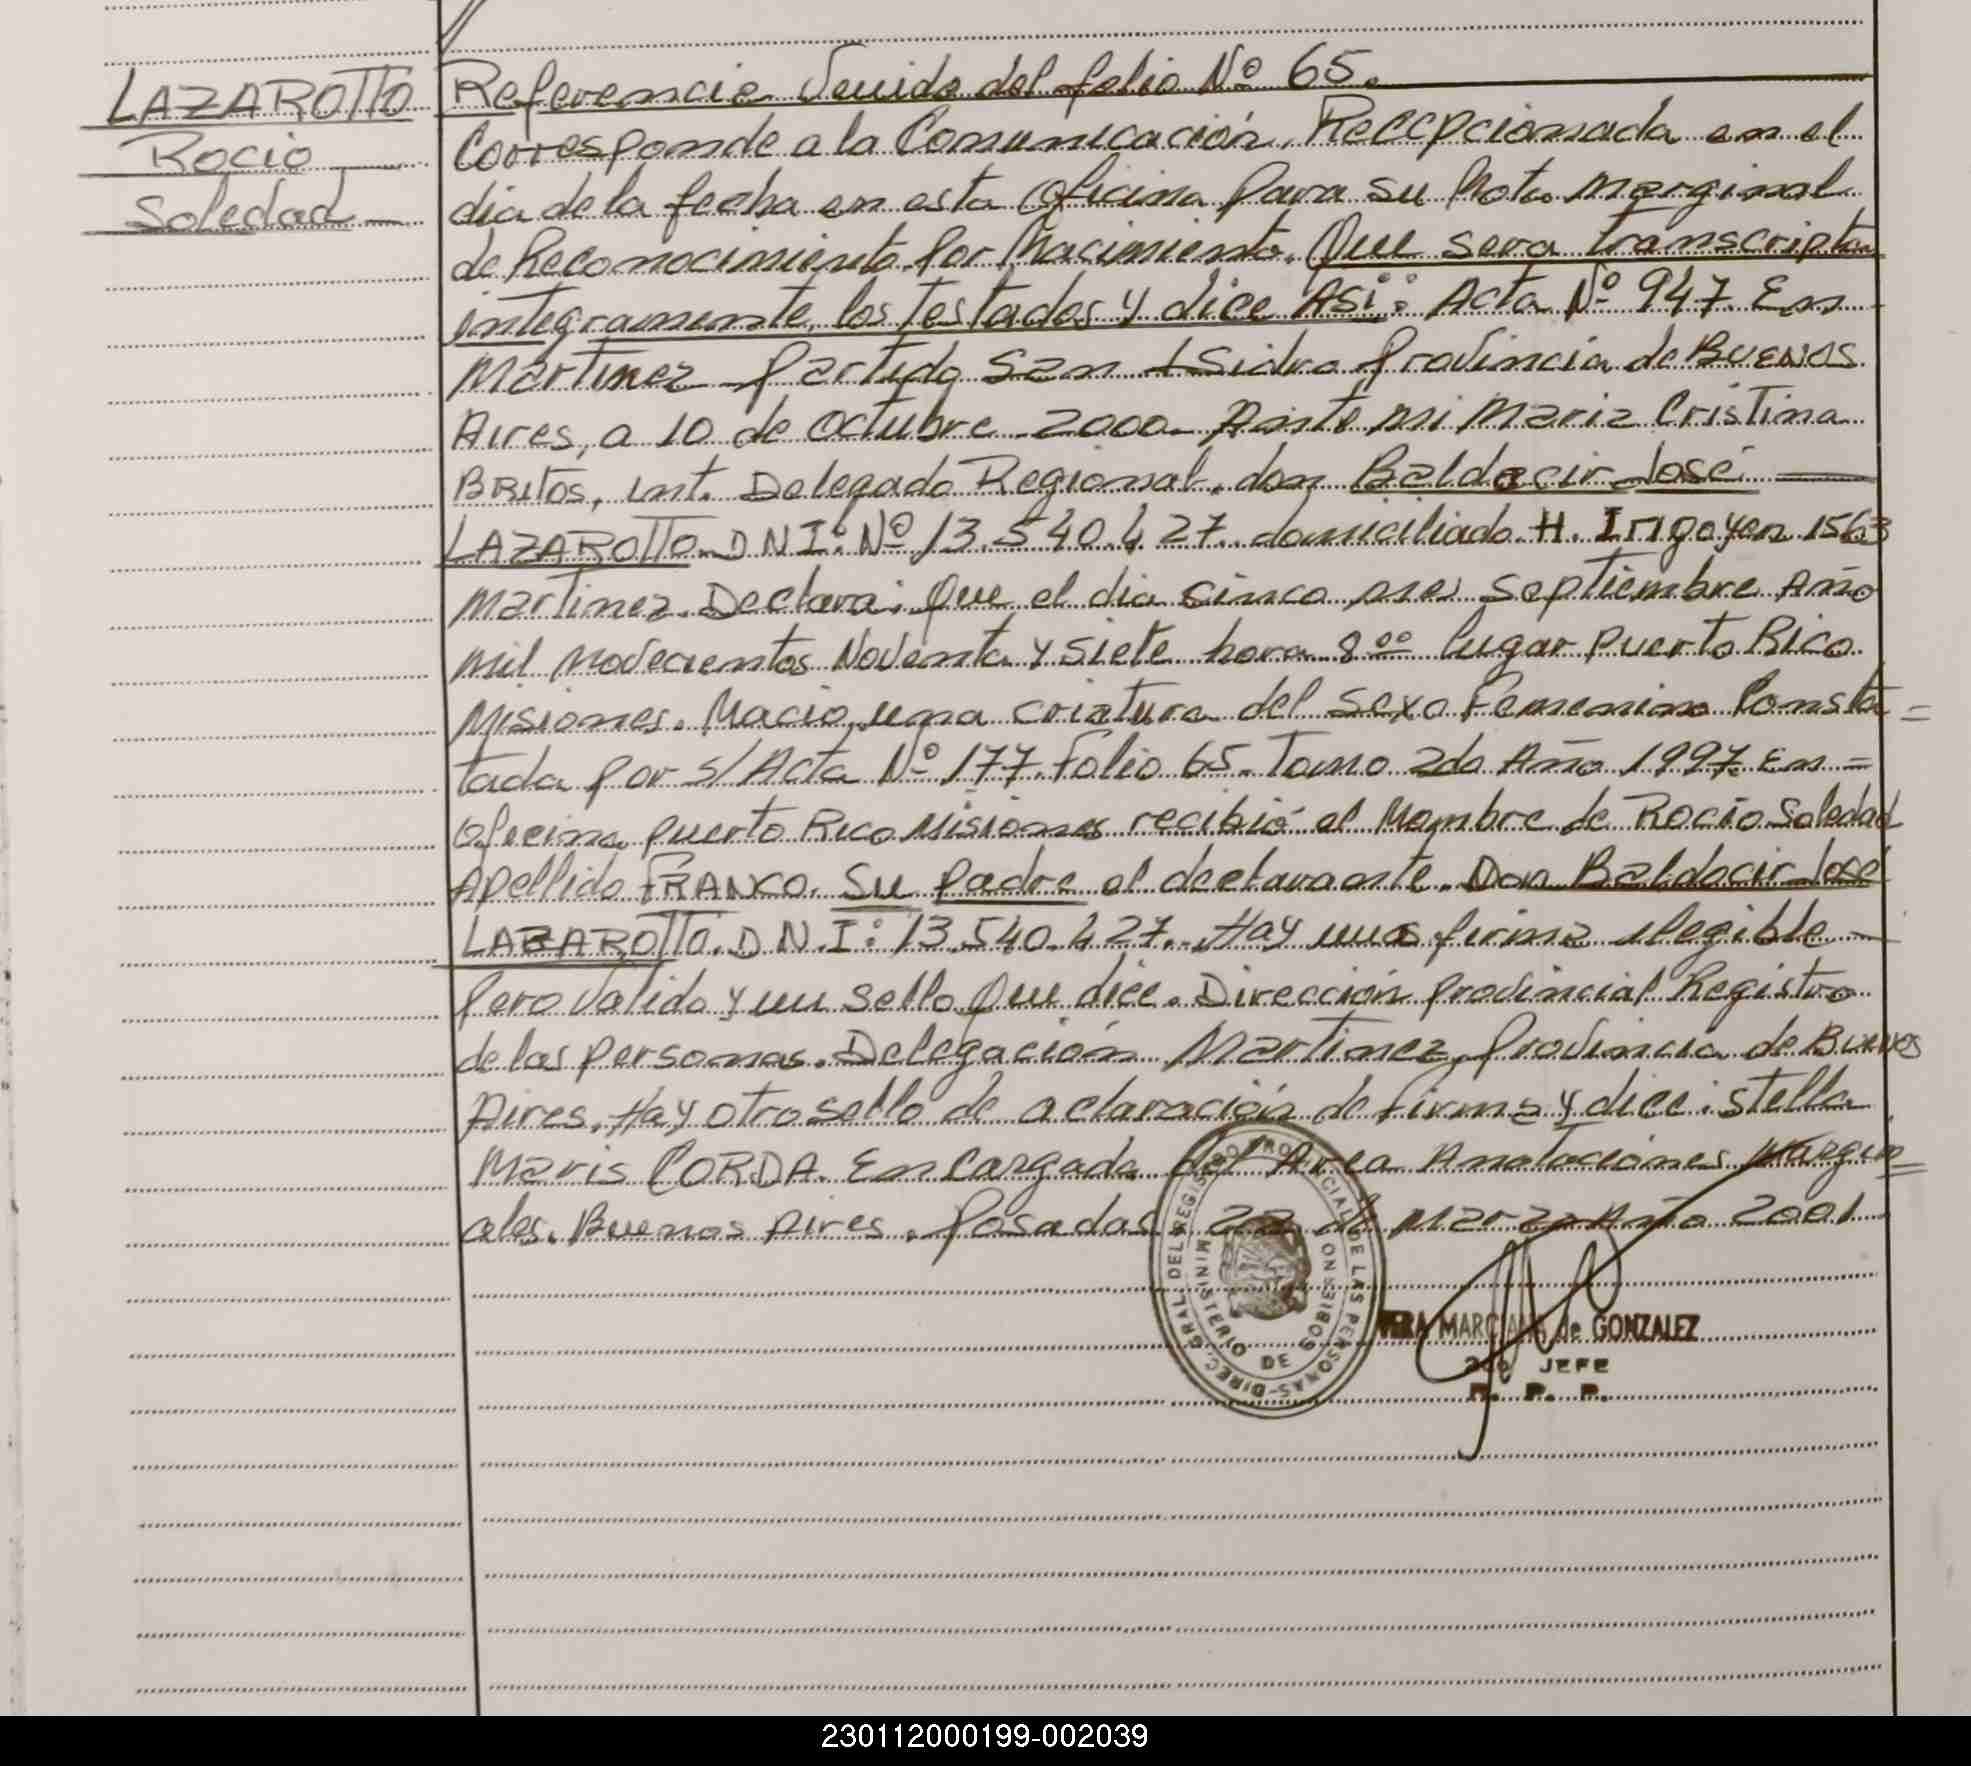 LAZAROTTO
Rocio
Soledad
Referencia Venida del folio Nº 65.
Corresponde a la Comunicación, Recepcionada en el
dia de la fecha en esta Oficina para su Nota Marginal
de Reconocimiento por Nacimiento. Que sera transcripta
integramente, los Testados y dice Asi: Acta Nº 947. En
Martinez Partido San Isidro Provincia de BUENOS
Aires, a 10 de Octubre 2000. Ante mi Maria Cristina
BRITOS, int. Delegado Regional. don Baldacir José
LAZAROTTO. D N I: Nº 13.540.427. domiciliado H. Irigoyen 1563
Martinez. Declara: Que el dia cinco mes Septiembre Año
mil novecientos Noventa y siete hora 8 00 lugar Puerto Rico
Misiones. Nacio una criatura del sexo Femenino Consta
tada por s/ Acta Nº 177. Folio 65. Tomo 2do Año 1997. En =
Oficina Puerto Rico Misiones recibió el Nombre de Rocio Soledad
Apellido FRANCO. Su padre el declarante. Don Baldacir José
LAZAROTTO. D N. I: 13.540.427. Hay una firma ilegible
Pero Valida y un sello Que dice. Dirección Provincial Registro
de las personas. Delegación Martinez, Provincia de Buenos
Aires. Hay otro sello de aclaración de firma y dice: Stella
Maris CORDA. Encargada del Area Anotaciones Margin =
ales. Buenos Aires. Posadas, de Marzo Año 2001.
DIREC. GRAL. DEL REGISTRO PROVINCIAL DE LAS PERSONAS
MINISTERIO DE GOBIERNO
MARCIANA de GONZALEZ
2do JEFE
R. P. P.
230112000199-002039